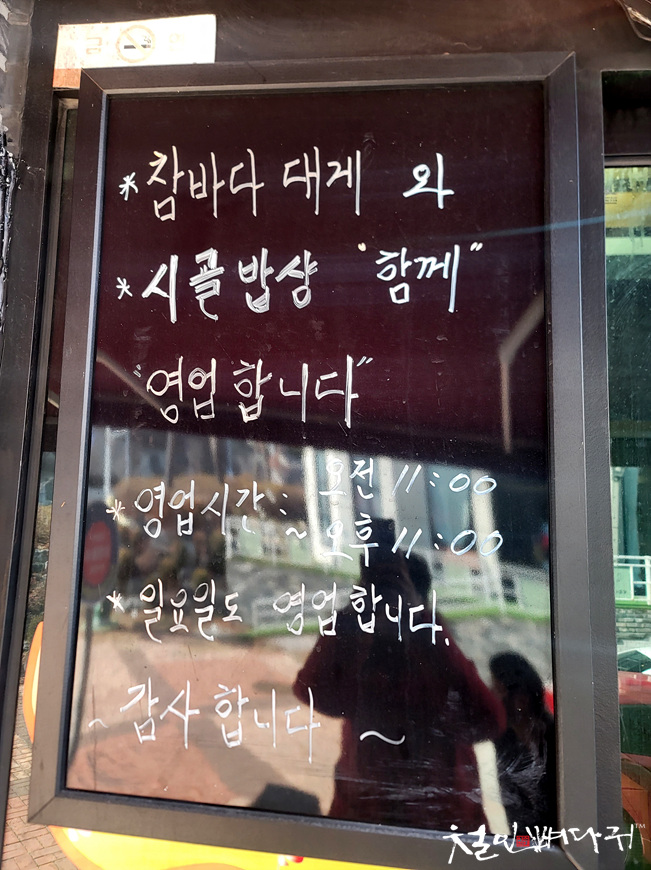 금 연
*참바다 대게 와
*시골밥상 "함께"
"영업합니다"
*영업시간: 오전 11:00
~오후 11:00
*일요일도 영업합니다.
~감사합니다~
철인뼈다귀™